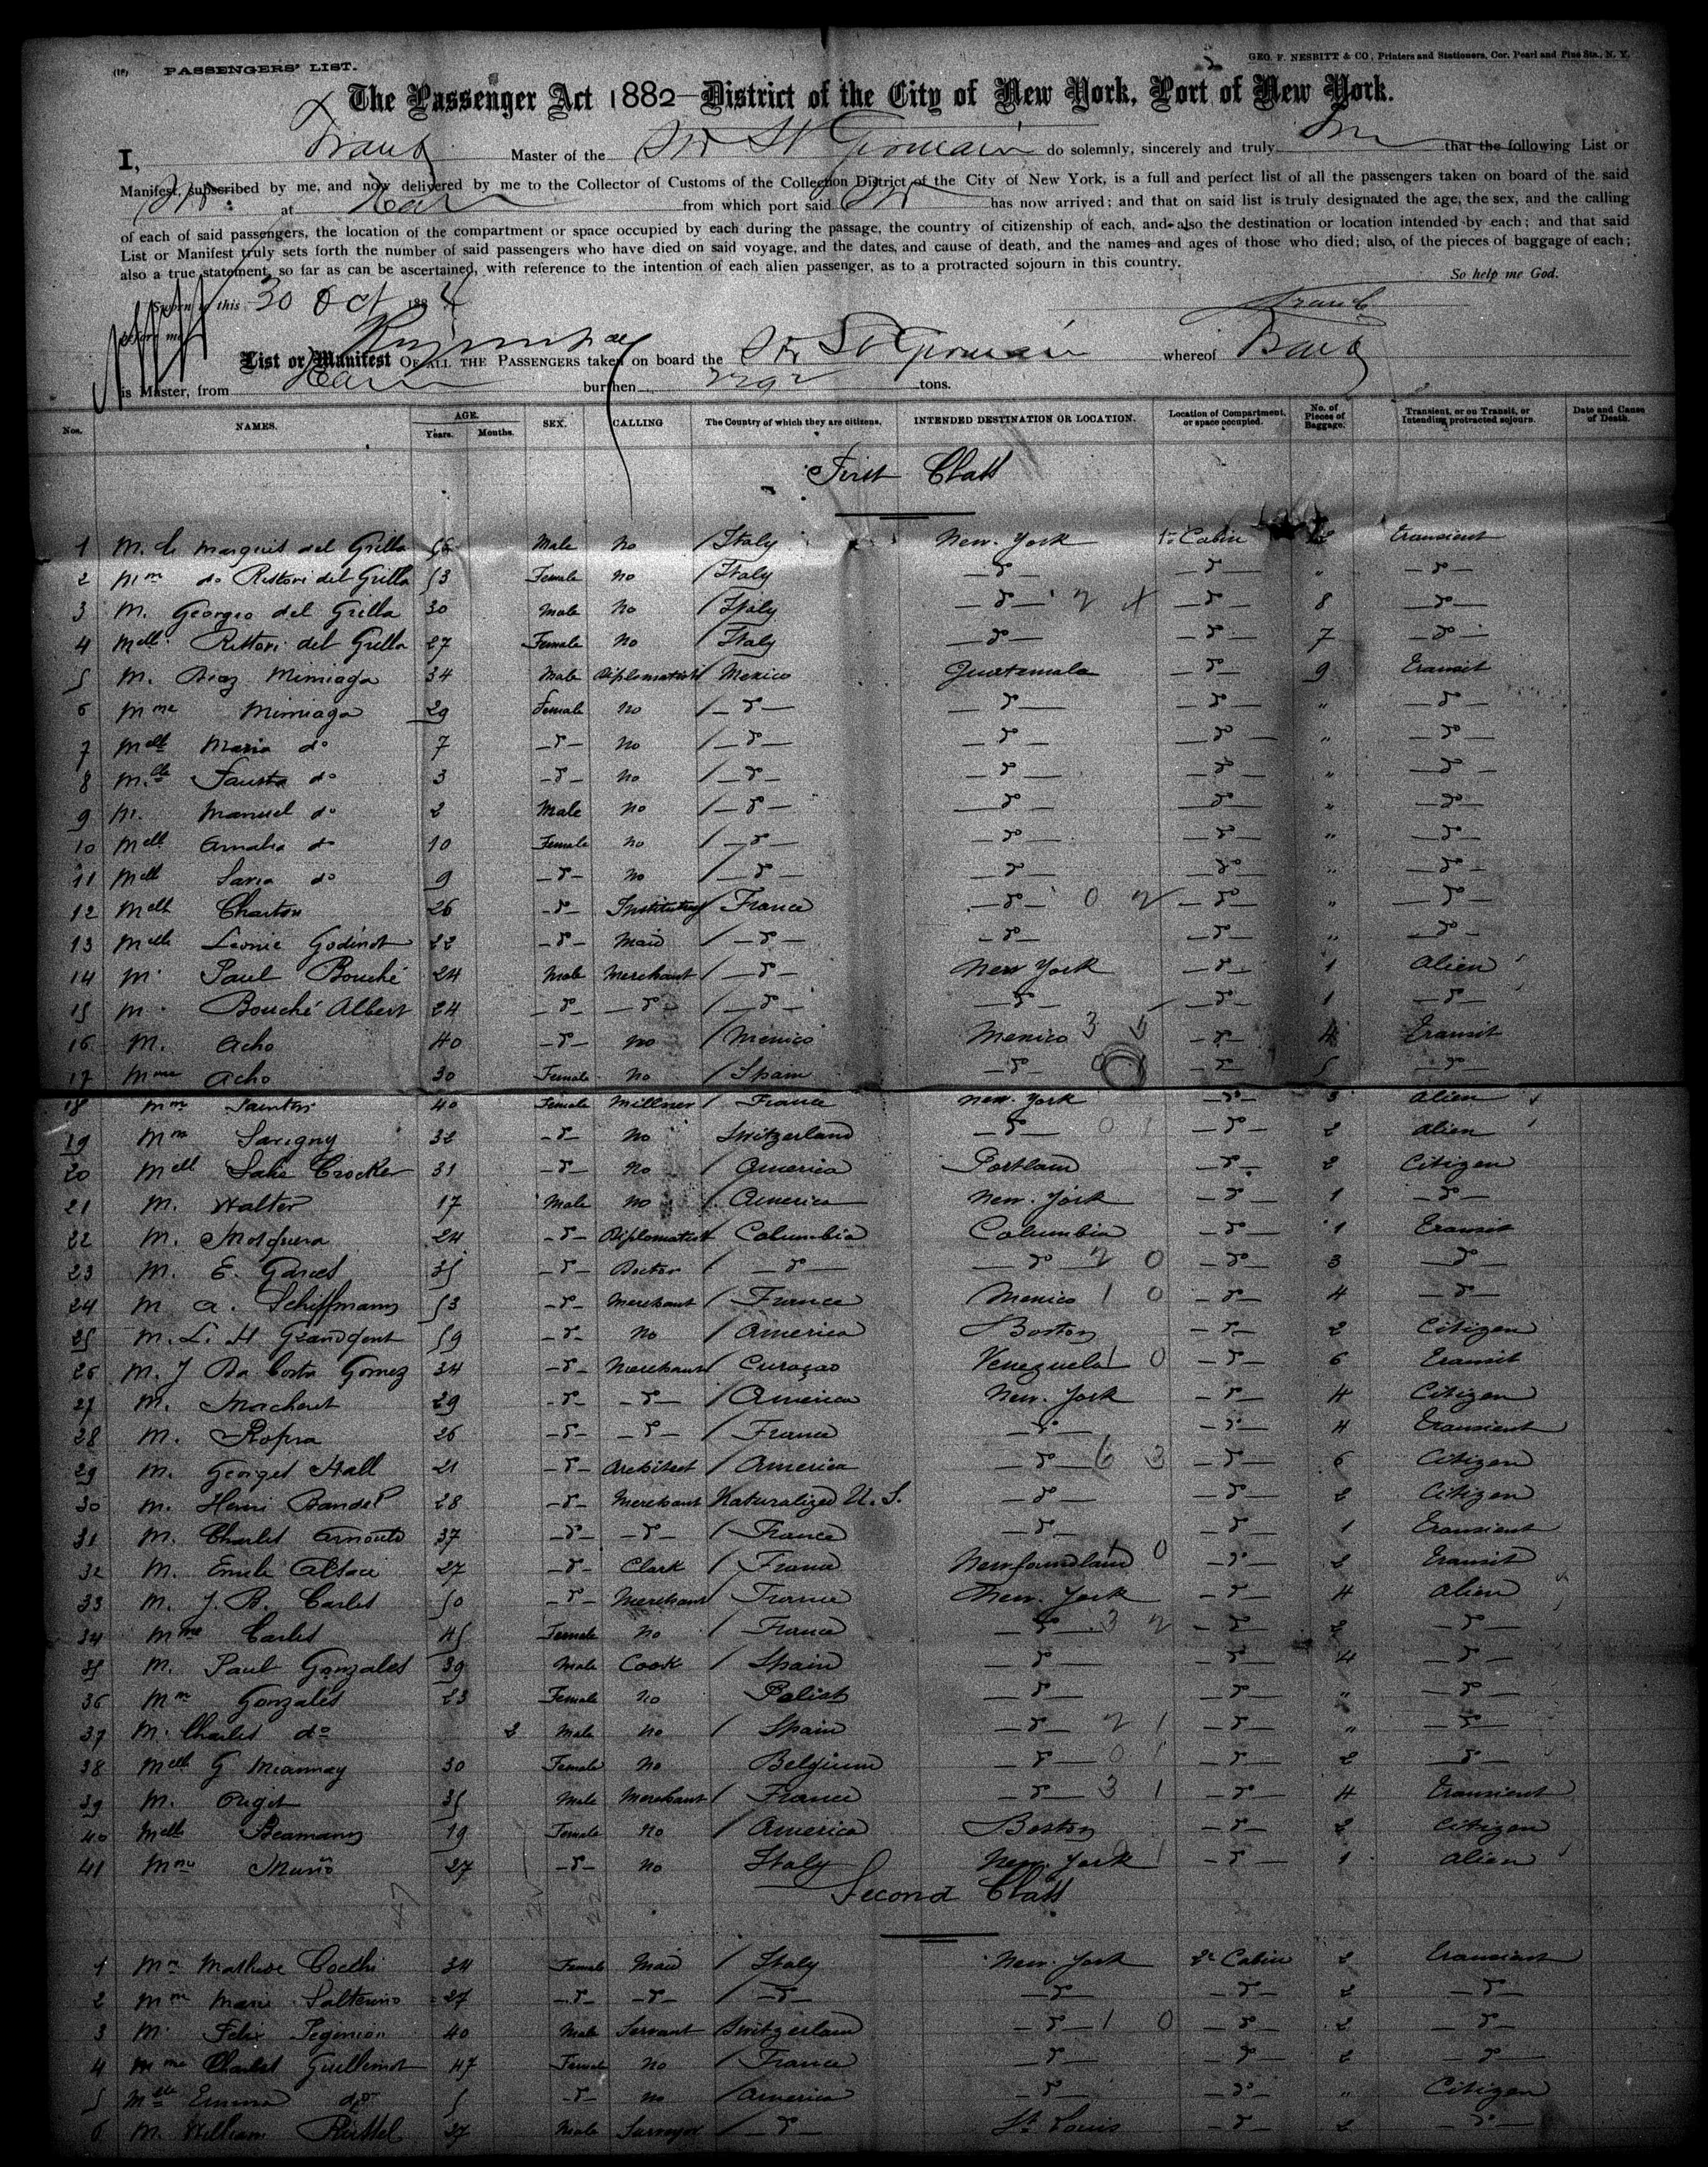 (18) PASSENGERS' LIST.
GEO. F. NESBITT & CO, Printers and Stationers, Cor. Pearl and Pine Sts., N. Y.
The Passenger Act 1882 District of the City of New York, Port of New York.
I, Traub Master of the Str St Germain do solemnly, sincerely and truly that the following List or
Manifest, subscribed by me, and now delivered by me to the Collector of Customs of the Collection District of the City of New York, is a full and perfect list of all the passengers taken on board of the said
Str at from which port said Str has now arrived; and that on said list is truly designated the age, the sex, and the calling
of each of said passengers, the location of the compartment or space occupied by each during the passage, the country of citizenship of each, and also the destination or location intended by each; and that said
List or Manifest truly sets forth the number of said passengers who have died on said voyage, and the dates, and cause of death, and the names and ages of those who died; also, of the pieces of baggage of each;
also a true statement, so far as can be ascertained, with reference to the intention of each alien passenger, as to a protracted sojourn in this country.
So help me God.
Sworn to this 30 Oct 1884 Traub
before me
List or Manifest OF ALL THE PASSENGERS taken on board the Str St Germain whereof Traub
is Master, from burthen tons.
Nos. NAMES. AGE. Years. Months. SEX. CALLING The Country of which they are citizens. INTENDED DESTINATION OR LOCATION. Location of Compartment, or space occupied. No. of Pieces of Baggage. Transient, or on Transit, or Intending protracted sojourn. Date and Cause of Death.
First Class
1 M. le Marquis del Grillo 56 Male No / Italy New-York 1re Cabin Transient
2 Mme do Ristori del Grillo 53 Female No / Italy do do " do
3 M. Georgeo del Grillo 30 Male No / Italy do do 8 do
4 Melle Ristori del Grillo 27 Female No / Italy do do 7 do
5 M. Diaz Mimiaga 34 Male Diplomatist / Mexico Guatemala do 9 Transit
6 Mme Mimiaga 29 Female No / do do do " do
7 Melle Maria do 7 do No / do do do " do
8 Melle Fausta do 3 do No / do do do " do
9 M. Manuel do 2 Male No / do do do " do
10 Melle Amalia do 10 Female No / do do do " do
11 Melle do 9 do No / do do do " do
12 Melle Charton 26 do / France do do " do
13 Melle Leonie Godinot 22 do Maid / do do do " do
14 M. Paul Bouché 24 Male Merchant / do New York do 1 Alien
15 M. Bouché Albert 24 do do / do do do 1 do
16 M. Acho 40 do No / Mexico Mexico 3 do 4 Transit
17 Mme Acho 30 Female No / Spain do do 5 do
18 Mme 40 Female Millner / France New-York do 3 Alien
19 Mme Savigny 32 do No Switzerland do do 2 Alien
20 Melle Crocker 31 do No / America Portland do 2 Citizen
21 M. Walter 17 Male No / America New-York do 1 do
22 M. Mosquera 24 do Diplomatist Columbia Columbia do 1 Transit
23 M. E. Garces 35 do Doctor / do do 2 0 do 3 do
24 M. A. Schiffmann 53 do Merchant / France Mexico 1 0 do 4 do
25 M. L. H Grandgent 59 do No / America Boston do 2 Citizen
26 M. J Da Costa Gomez 34 do Merchant / Curaçao Venezuela 1 0 do 6 Transit
27 M. 29 do do / America New-York do 4 Citizen
28 M. 26 do do / France do do 4 Transient
29 M. Georges Hall 21 do Architect / America do 6 3 do 6 Citizen
30 M. Henri 28 do Merchant Naturalized U. S. do do 2 Citizen
31 M. Charles 37 do do / France do do 1 Transient
32 M. Emile 27 do Clark / France Newfoundland 1 0 do 2 Transit
33 M. J. B. Carles 50 do Merchant / France New-York do 4 Alien
34 Mme Carles 45 Female No / France do 3 2 do 2 do
35 M. Paul Gonzales 39 Male Cook / Spain do do 4 do
36 Mme Gonzales 23 Female No do do " do
37 M. Charles do 2 Male No / Spain do 2 1 do " do
38 Melle G Miannay 30 Female No Belgium do 0 1 do 2 do
39 M. 35 Male Merchant / France do 3 1 do 4 Transient
40 Melle Beamann 19 Female No / America Boston do 2 Citizen
41 Mme 27 do No Italy New-York do 1 Alien
Second Class
1 Mme 34 Female Maid / Italy New-York 2e Cabin 2 Transient
2 Mme Marie 27 do do / do do do 2 do
3 M. Felix 40 Male Servant Switzerland do 1 0 do 2 do
4 Mme Charles Guillemot 47 Female No / France do do 2 do
5 Melle Emma do 5 do No / America do do " Citizen
6 M. William 37 Male Surveyor / do St Louis do 2 do